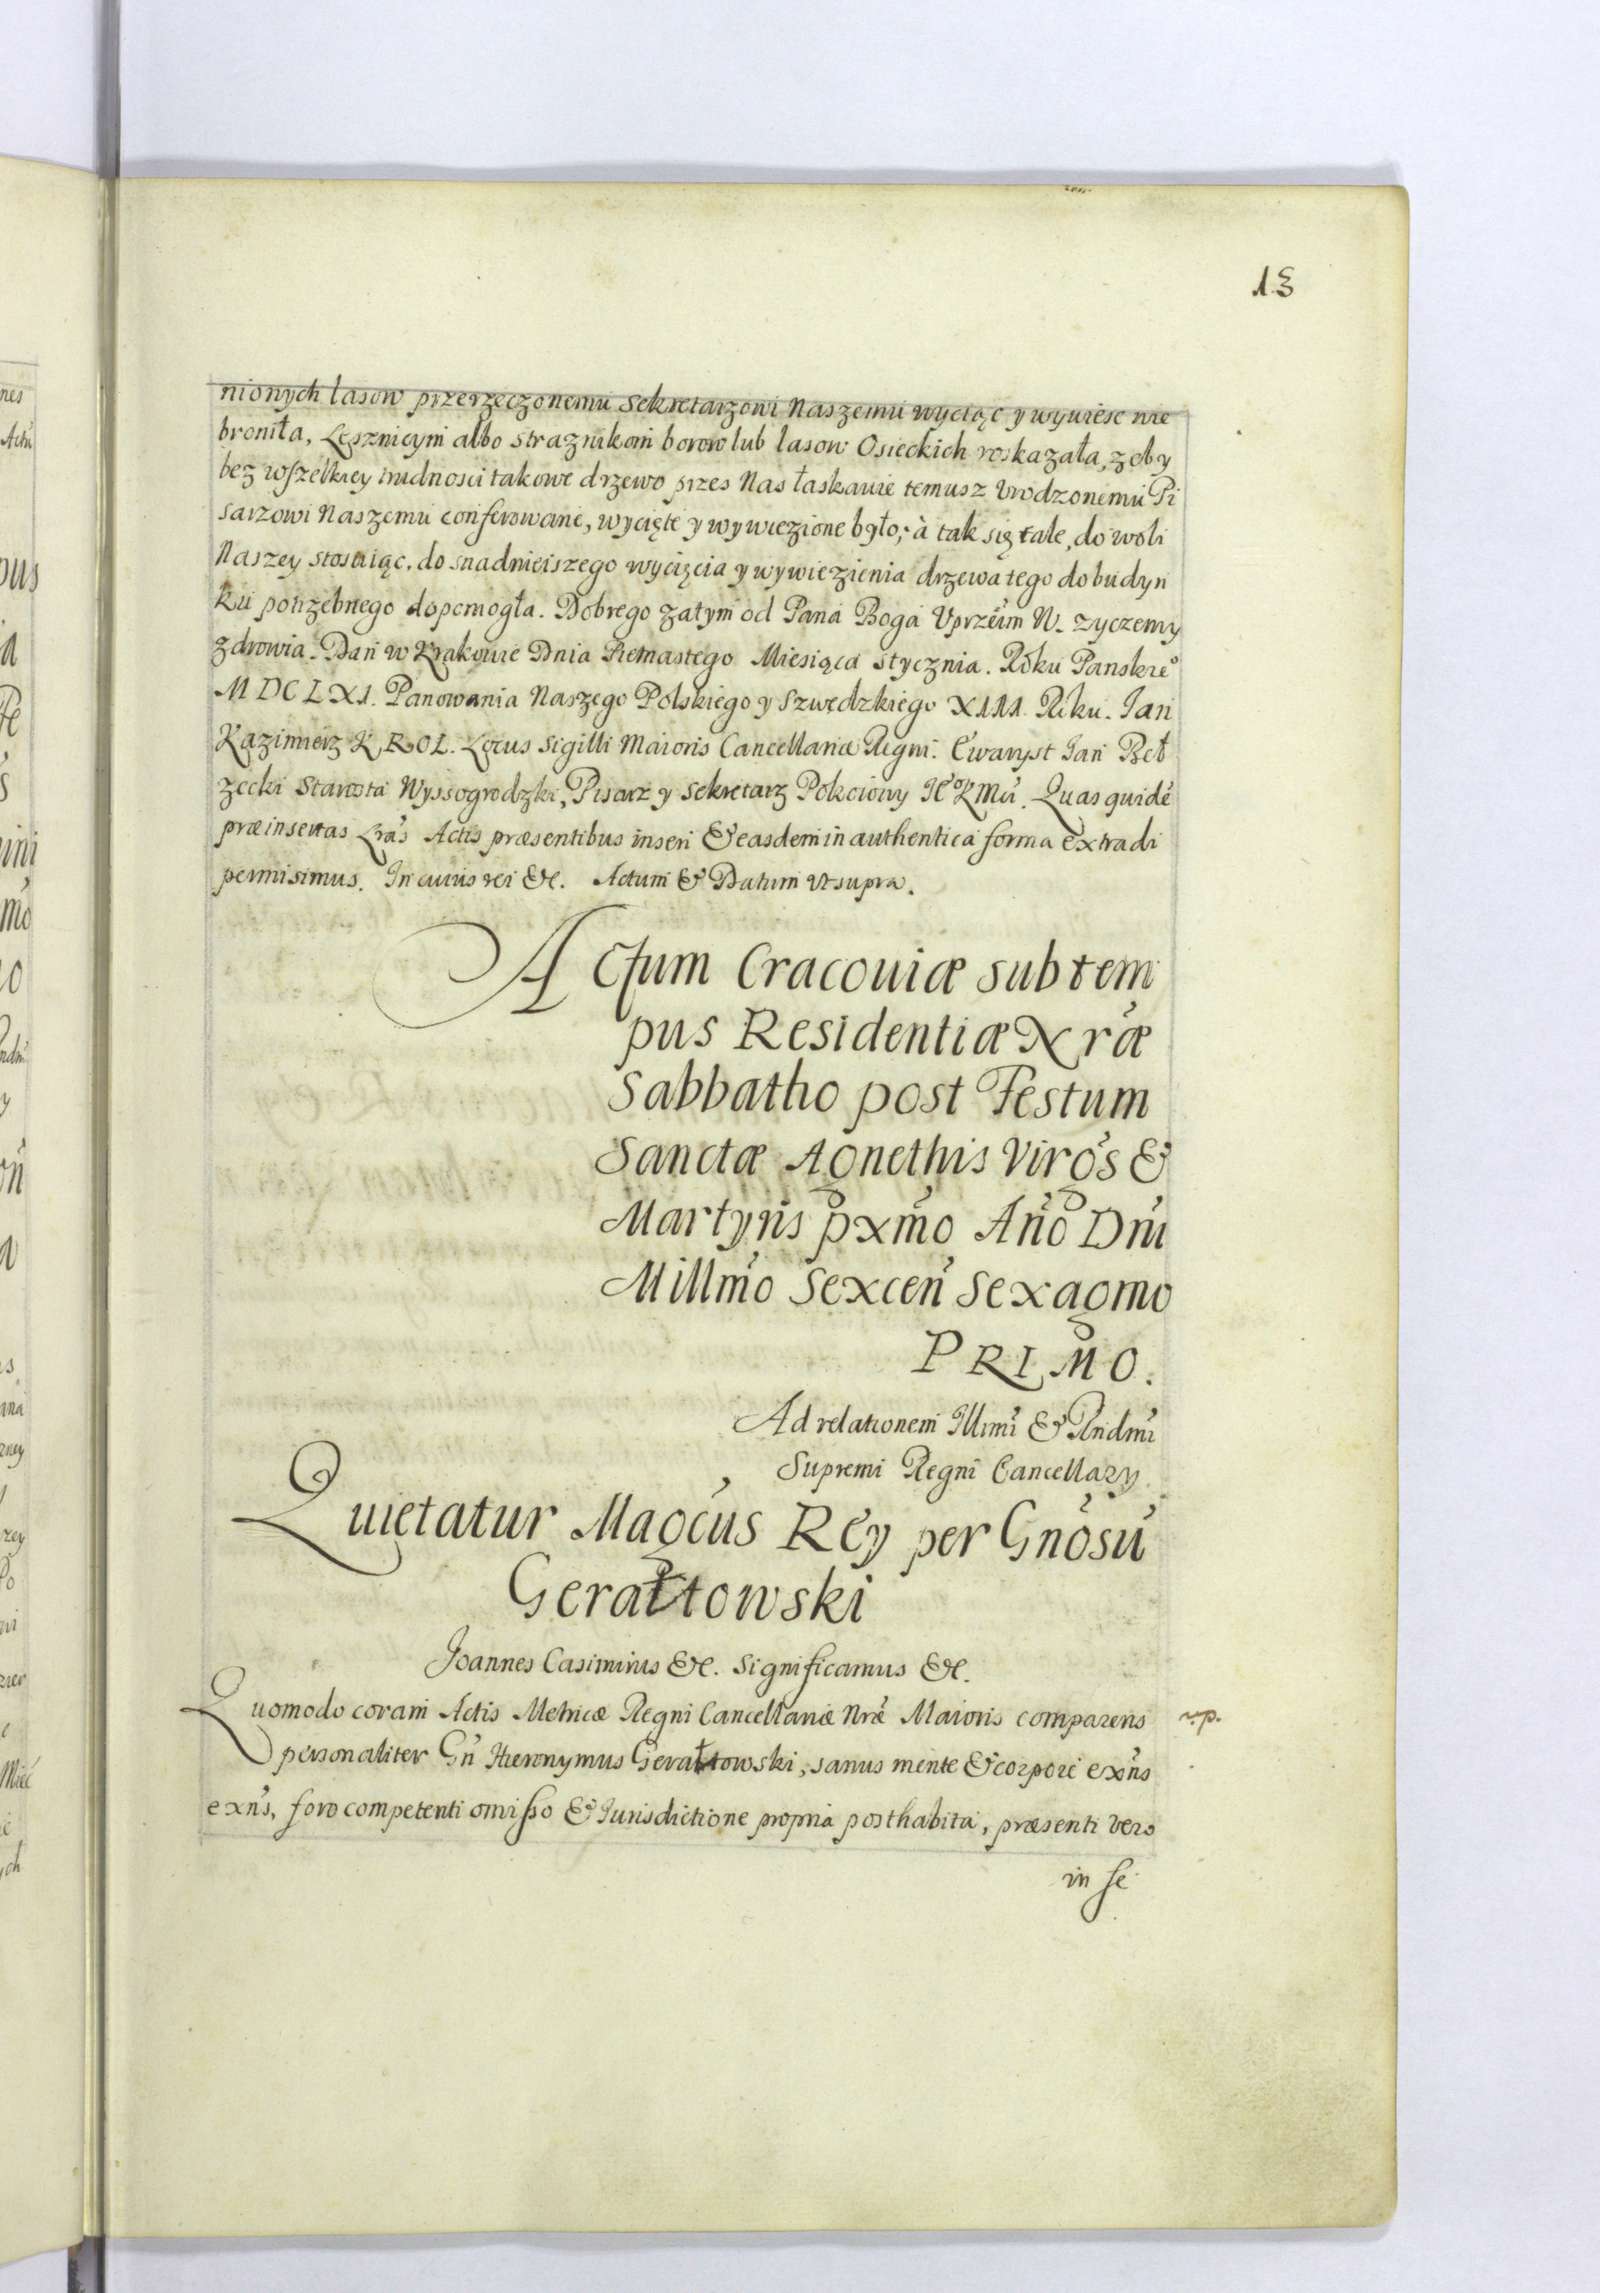 13
nionych lasow przerzeczonemu Sekretarzowi Naszemu wyciąc y wywiesc nie
broniła, Lesznicym albo straznikom borow lub lasow Osieckich roskazała, zeby
bez wszelkiey trudnosci takowe drzewo przes Nas łaskawie temusz Vrodzonemu Pi
sarzowi Naszemu conferowane, wycięte y wywiezione było; à tak się tale, do woli
Naszey stosuiąc, do snadnieiszego wycięcia y wywiezienia drzewa tego do budyn
ku potrzebnego dopomogła. Dobrego zatym od Pana Boga Vprzeim W. zyczemy
zdrowia. Dan w Krakowie Dnia Piętnastego Miesiąca Stycznia. Roku Panskieo
MDCLXI. Panowania Naszego Polskiego y Szwedzkiego XIII. Roku. Jan
Kazimierz KROL. Locus Sigilli Maioris Cancellariæ Regni. Ewaryst Jan Beł
zecki Starosta Wyssogrodzki, Pisarz y Sekretarz Pokoiowy JE°KMci. Quas quidē
præinsertas Lrās Actis præsentibus inseri & easdem in authentica forma extradi
permisimus. In cuius rei &c. Actum & Datum vt supra.
Actum Cracouiæ sub tem
pus Residentiæ Nræ
Sabbatho post Festum
Sanctæ Agnethis Virgs &
Martyris pxmo Año Dñi
Millmo Sexcen Sexagmo
PRIMO.
Ad relationem Illmi & Rndmi
Supremi Regni Cancellary
Quietatur Magcus Rey per Gnosu
Gerałtowski
Joannes Casimirus &c. Significamus &c.
Quomodo coram Actis Metricæ Regni Cancellariæ Nræ Maioris comparens
personaliter Gn Hieronymus Gerałtowski, sanus mente & corpore exñs
exñs, foro competenti omisso & Jurisdictione propria posthabita, præsenti vero
in se